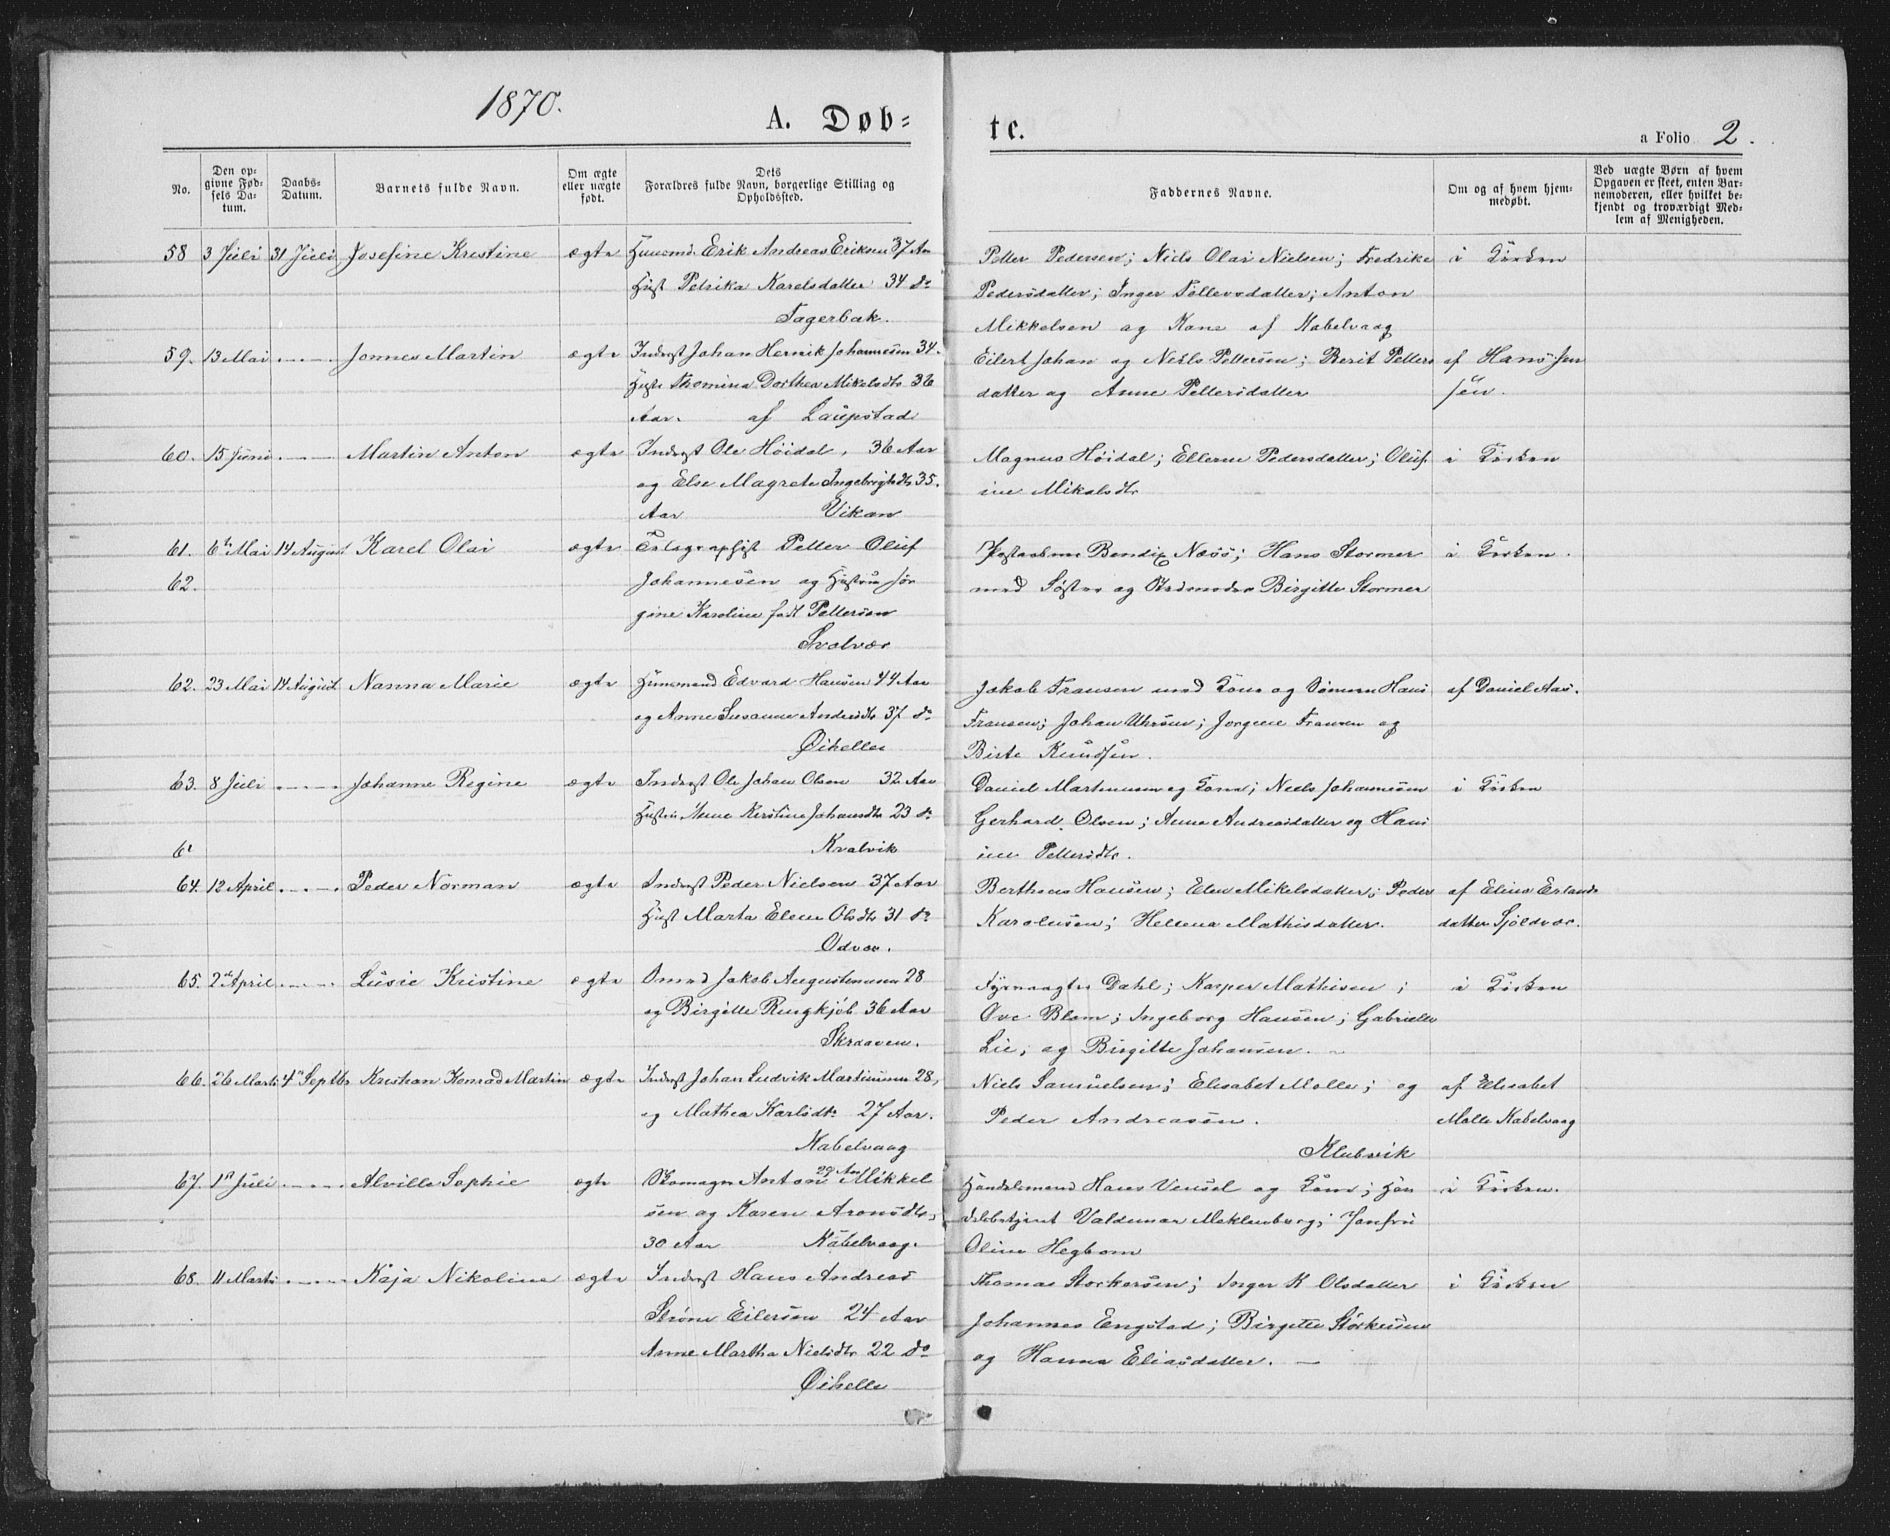 1870.
A. Døb=
te.
a Folio 2.
No.
Den op-
givne Fød-
sels Da-
tum.
Daabs-
Datum.
Barnets fulde Navn.
Om ægte
eller uægte
født.
Dets
Forældres fulde Navn, borgerlige Stilling og
Opholdssted.
Faddernes Navne.
Om og af hvem hjem-
medøbt.
Ved uægte Børn af hvem
Opgaven er skeet, enten Bar-
nemoderen, eller hvilket be-
kjendt og troværdigt Med-
lem af Menigheden.
58 3 Juli 31 Juli Josefine Kristine ægte Huusmd. Erik Andreas Eriksen 37 Aar
Hust Petrika Karelsdatter 34 do
Fagerbak.
Petter Pedersen; Niels Olai Nielsen; Fredrike i Kirken
Pedersdatter; Inger Tollevsdatter; Anton
Mikkelsen og Kone af Kabelvaag
59. 13 Mai Jonnes Martin ægte Inderst Johan Henrik Johannesen 34.
Thomina Dorthea Mikelsdtr 36
Aar. af Laupstad
Eilert Johan og Niels Pettersen; Berit Petters af Hans Jen
datter og Anne Pettersdatter sen.
60. 15 Juni Martin Anton ægte Inderst Ole Höidal, 36 Aar
og Else Magrete Ingebrigtsdtr 35.
Aar Vikan
Magnus Höidal; Ellerne Pedersdatter; Oluf i Kirken
ine Mikalsdtr
61. 6te Mai 14 August Karel Olai ægte Telegraphist Petter Oluf
62. Johannesen og Hustru Jör
gine Karoline født Pettersen
Svolvær
Bendix Næss; Hans Stormer i Kirken.
med Søster og Jordmoder Birgitte Stormer
62. 23 Mai 14 August Nanna Marie ægte Huusmand Edvard Hansen 44 Aar
og Anne Susanne Andersdtr 37 do
Øihelle
Jakob Fransen med Kone og Sönnen Hans af Daniel Aas.
Fransen; Johan Uhrsen; Jorgine Fransen og
Birte Knudsen.
63. 8 Juli Johanne Regine ægte Inderst Ole Johan Olsen 32 Aar
Kerstine Johansdtr 23 do
6 Kvalvik
Daniel Martinussen og Kone; Niels Johannesen i Kirken
Gerhard Olsen; Anne Andreasdatter og Hans
ine Pettersdtr.
64. 12 April Peder Norman ægte Inderst Peder Nielsen 37 Aar
Hust Marta Elene Olsdtr 31 do
Odvær.
Berthens Hansen; Elen Mikelsdatter; Peder af Elina Erlands
Karolusen; Hellena Mathisdatter. datter Sjoldvær.
65. 2den April Lusie Kristine ægte Jakob Augustinussen 28
og Birgitte Ringkjöb 36 Aar
Skraaven.
Fyrvogter Dahl; Kasper Mathisen; i Kirken
Ove Blom; Ingeborg Hansen; Gabrielle
Lie, og Birgitte Johansen.
66. 26 Marts 4de Septbr Kristian Konrad Martin ægte Inderst Johan Ludvik Martinussen 28,
og Mathea Karlsdtr 27 Aar.
Kabelvaag
Niels Samuelsen; Elisabet Molle; og af Elisabet
Peder Andreasen. Molle Kabelvaag
Klubvik
67. 1ste Juli Alvilde Sophie ægte Skomager Anton 29 Aar Mikkel
sen og Karen Aronsdtr,
30 Aar Kabelvaag.
Handelsmand Hans Vensel og Kone; Han i Kirken.
delsbetjent Valdemar Meklenborg; Jomfru
Oline Hegbom
68. 11 Marts Kaja Nikoline ægte Inderst Hans Andreas
Ström Eilersen 24 Aar
Anne Martha Nielsdtr 22 do
Øihelle
Thomas Storkersen; Inger K Olsdatter i Kirken
Johannes Engstad; Birgitte Storkersen
og Hanna Eliasdatter.